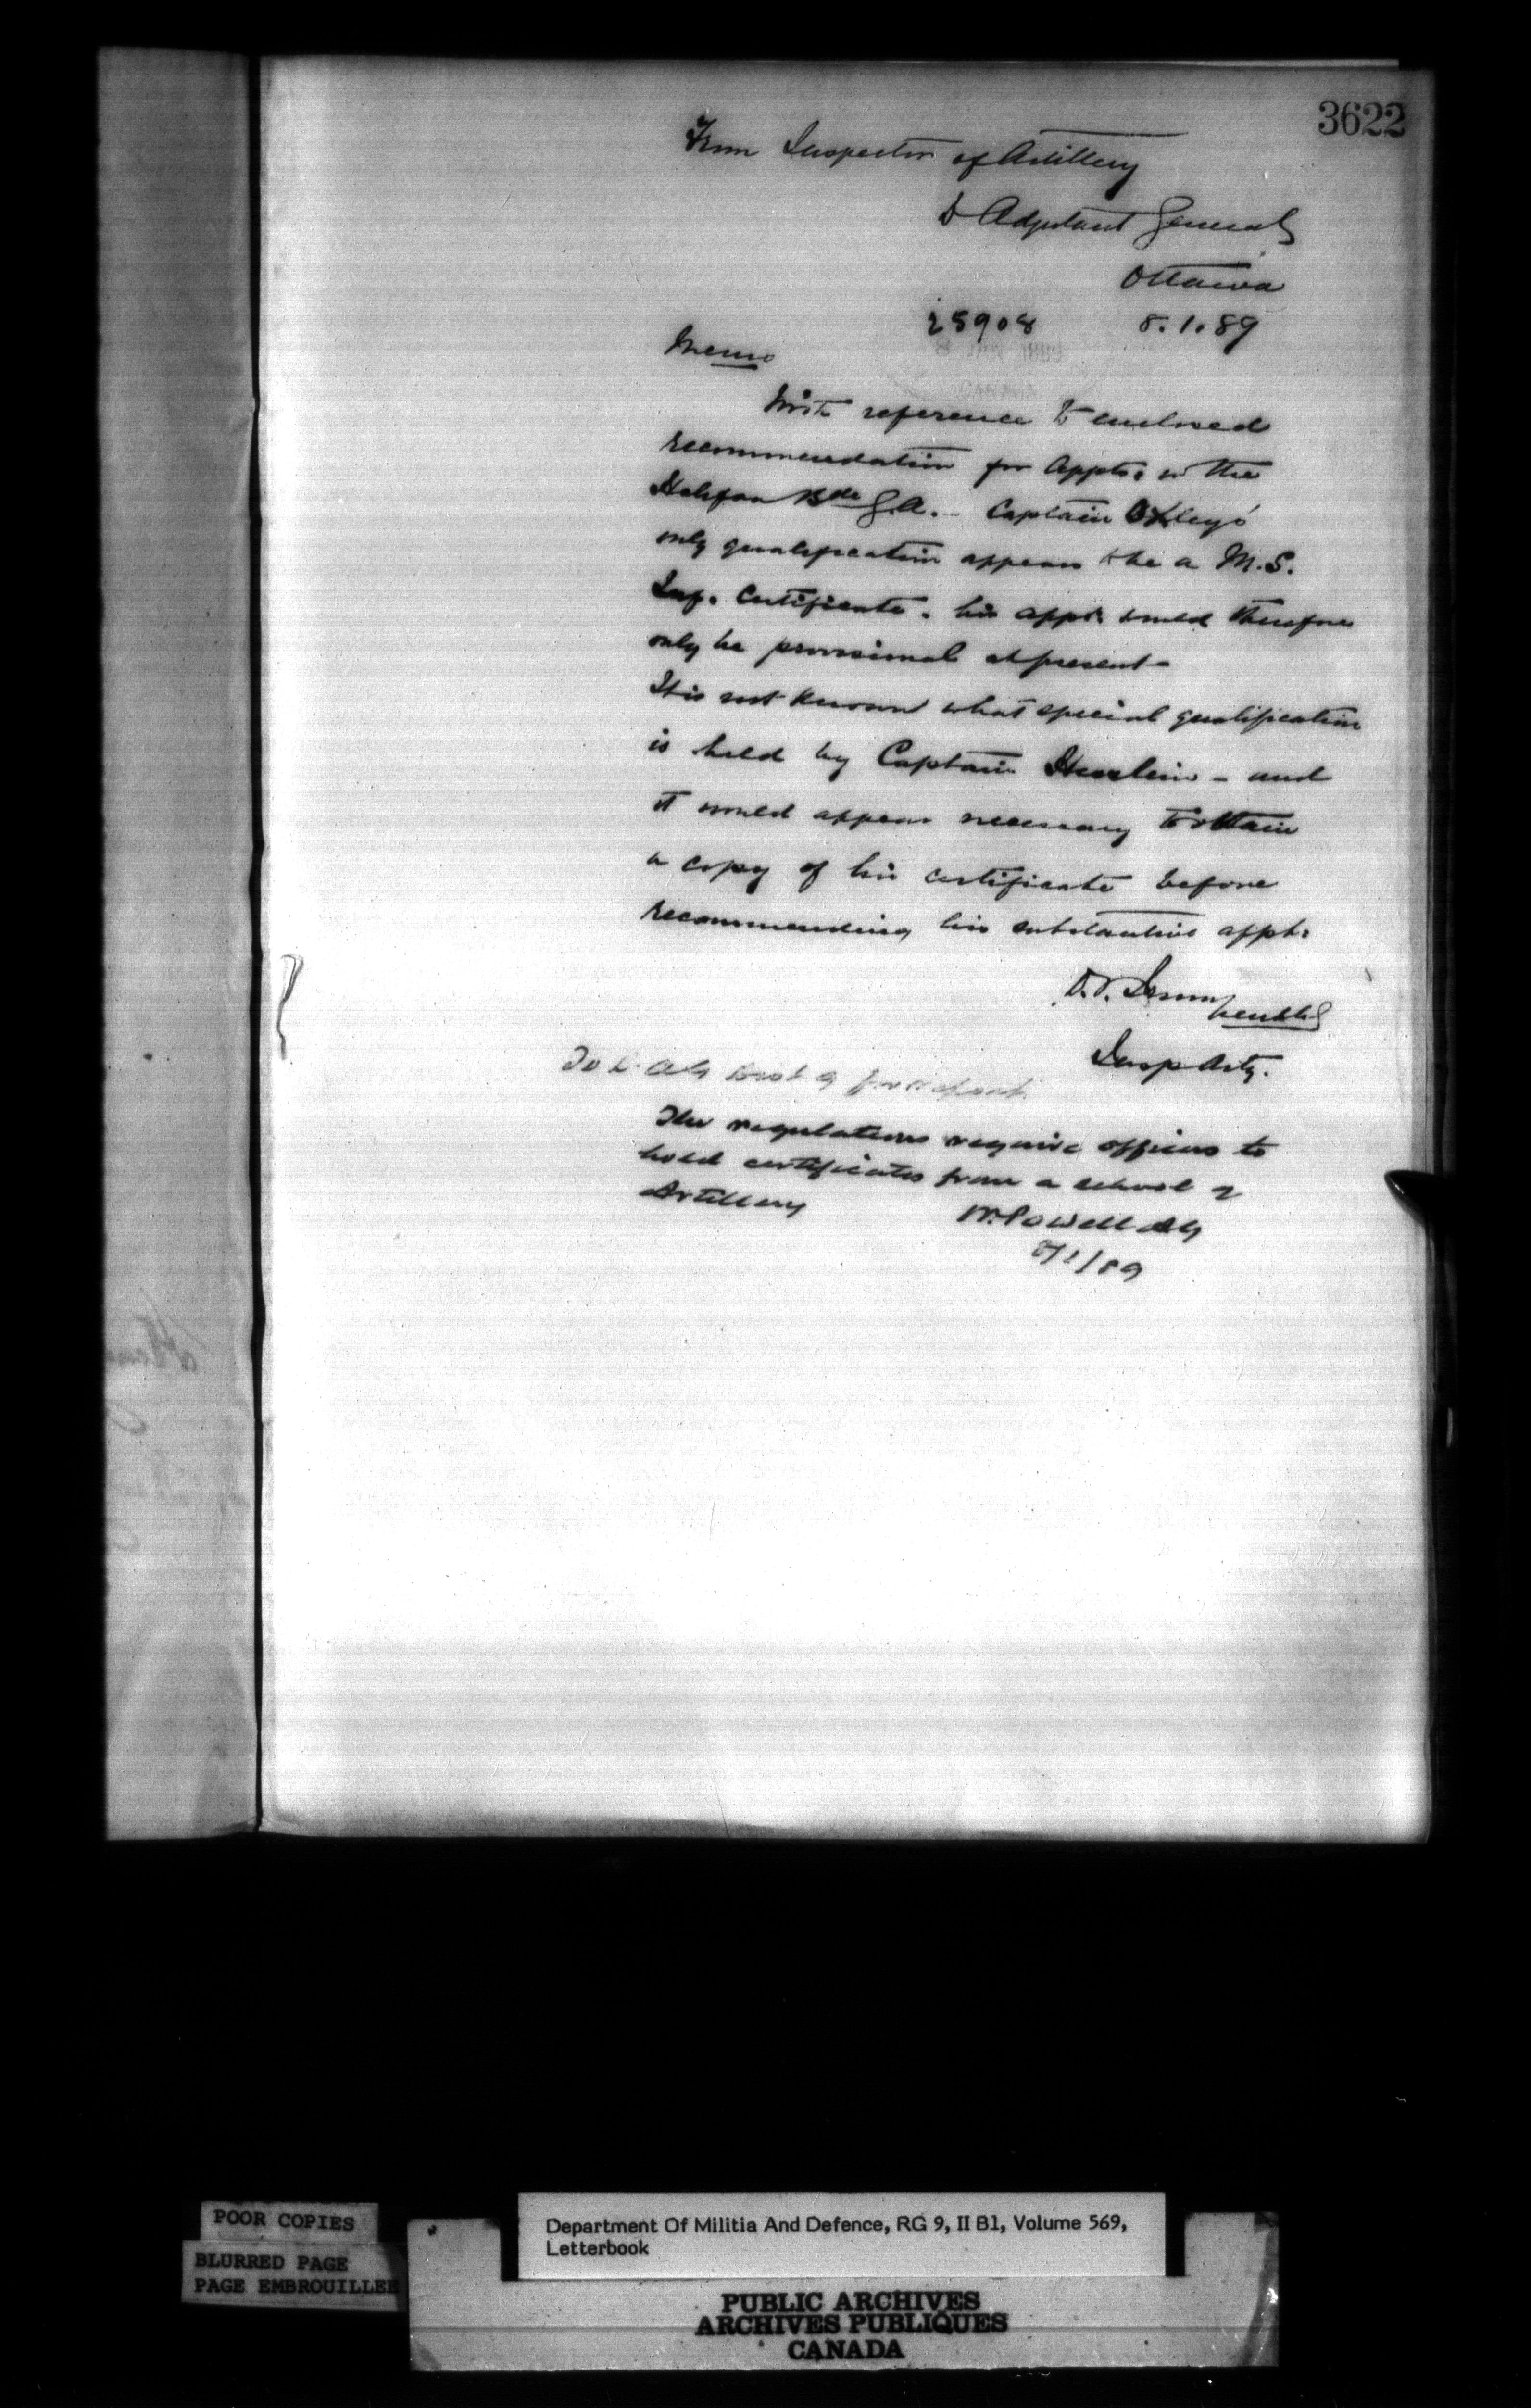 3622
From Inspector of Artillery
to Adjutant General
Ottawa
25908 8.1.89
8 JAN 1889
Memo
With reference to enclosed
recommendation for Appts: in the
Halifax Bde G.A. – Captain Oxley's
only qualification appears to be a M.S.
Inf. Certificate. his appt: would therefore
only be provisional at present –
It is not known what special qualification
is held by Captain – and
it would appear necessary to obtain
a copy of his certificate before
recommending his substantive appt:
D.T. Irwin Lt Col
Insp Arty.
To D.A.G. Dist 9 for report
The regulations require officers to
hold certificates from a school of
Artillery W. Powell AG
8/1/89
POOR COPIES
BLURRED PAGE
PAGE EMBROUILLEE
Department Of Militia And Defence, RG 9, II B1, Volume 569,
Letterbook
PUBLIC ARCHIVES
ARCHIVES PUBLIQUES
CANADA